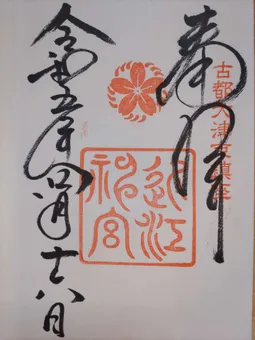 奉拝
古都大津京鎮座
近江神宮
令和五年四月十八日